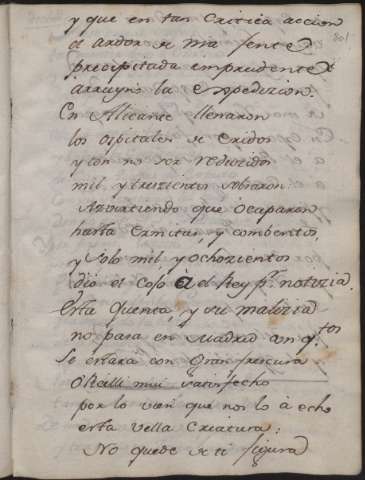 y que en tan Critica accion
el ardor de mia fente
precipitada imprudente
arruyno la Expedizion.
En Alicante llenaron
los ospitales de eridos
y con no ser reduzidos
mil, y trezientos sobraron:
Advirtiendo que ocuparon
hasta Ermitas, y combentos,
y solo mil y ochozientos
dio el Coso a el Rey pr. notizia
esta quenta, y su malizia
no pasa en Madrid con qtos
Se estará con Gran frescura
OReilli mui satisfecho
por lo vien que nos lo à echo
esta vella Criatura:
No quede de ti figura